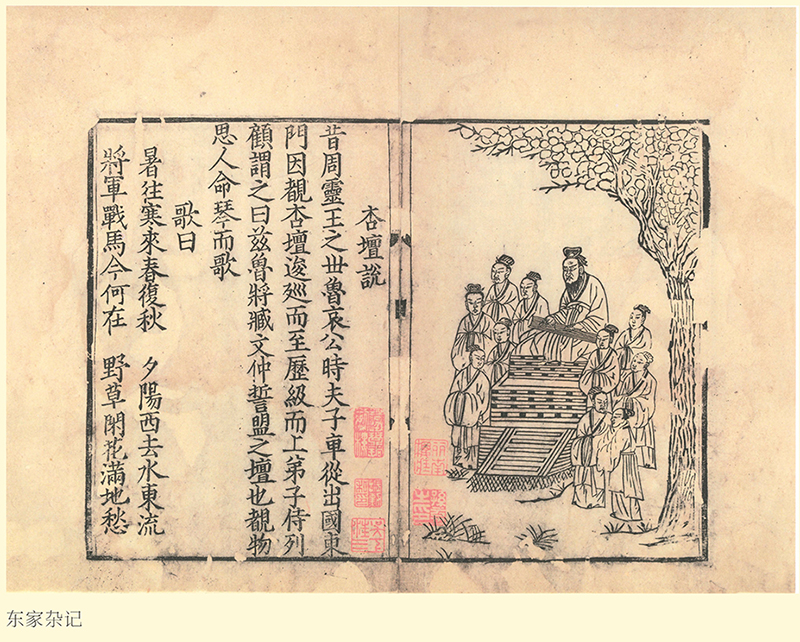 杏壇說
昔周靈王之世魯哀公時夫子車從出國東
門因覩杏壇逡廵而至歷級而上弟子侍列
顧謂之曰茲魯將臧文仲誓盟之壇也覩物
思人命琴而歌
歌曰
暑往寒來春復秋 夕陽西去水東流
將軍戰馬今何在 野草閑花滿地愁
东家杂记